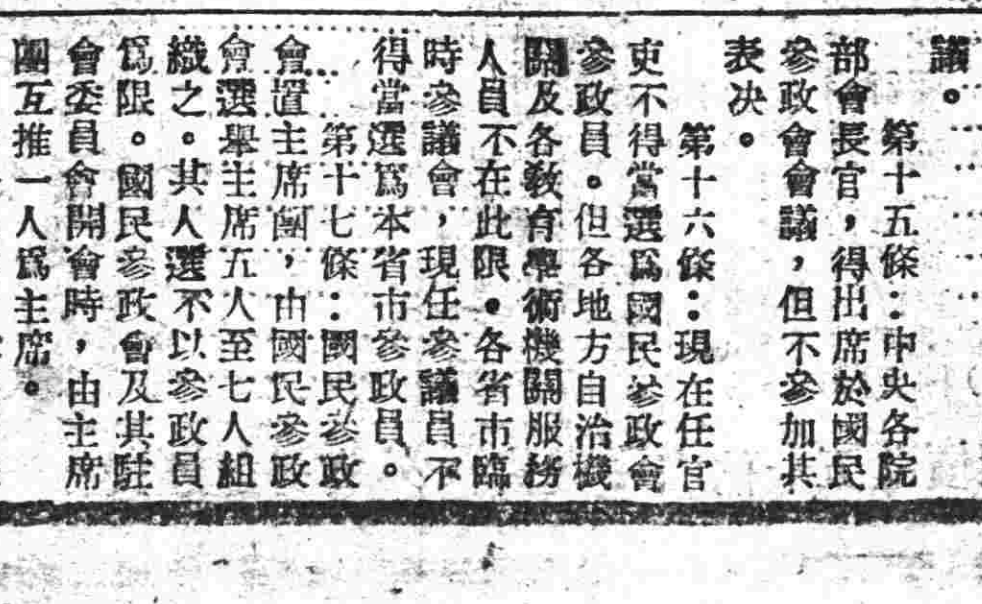 議。
第十五條：中央各院
部會長官，得出席於國民
參政會會議，但不參加其
表决。
第十六條：現在任官
吏不得當選爲國民參政會
參政員。但各地方自治機
關及各敎育學術機關服務
人員不在此限。各省市臨
時參議會，現任參議員不
得當選爲本省市參政員。
第十七條：國民參政
會置主席團，由國民參政
會選舉主席五人至七人組
織之。其人選不以參政員
爲限。國民參政會及其駐
會委員會開會時，由主席
團互推一人爲主席。